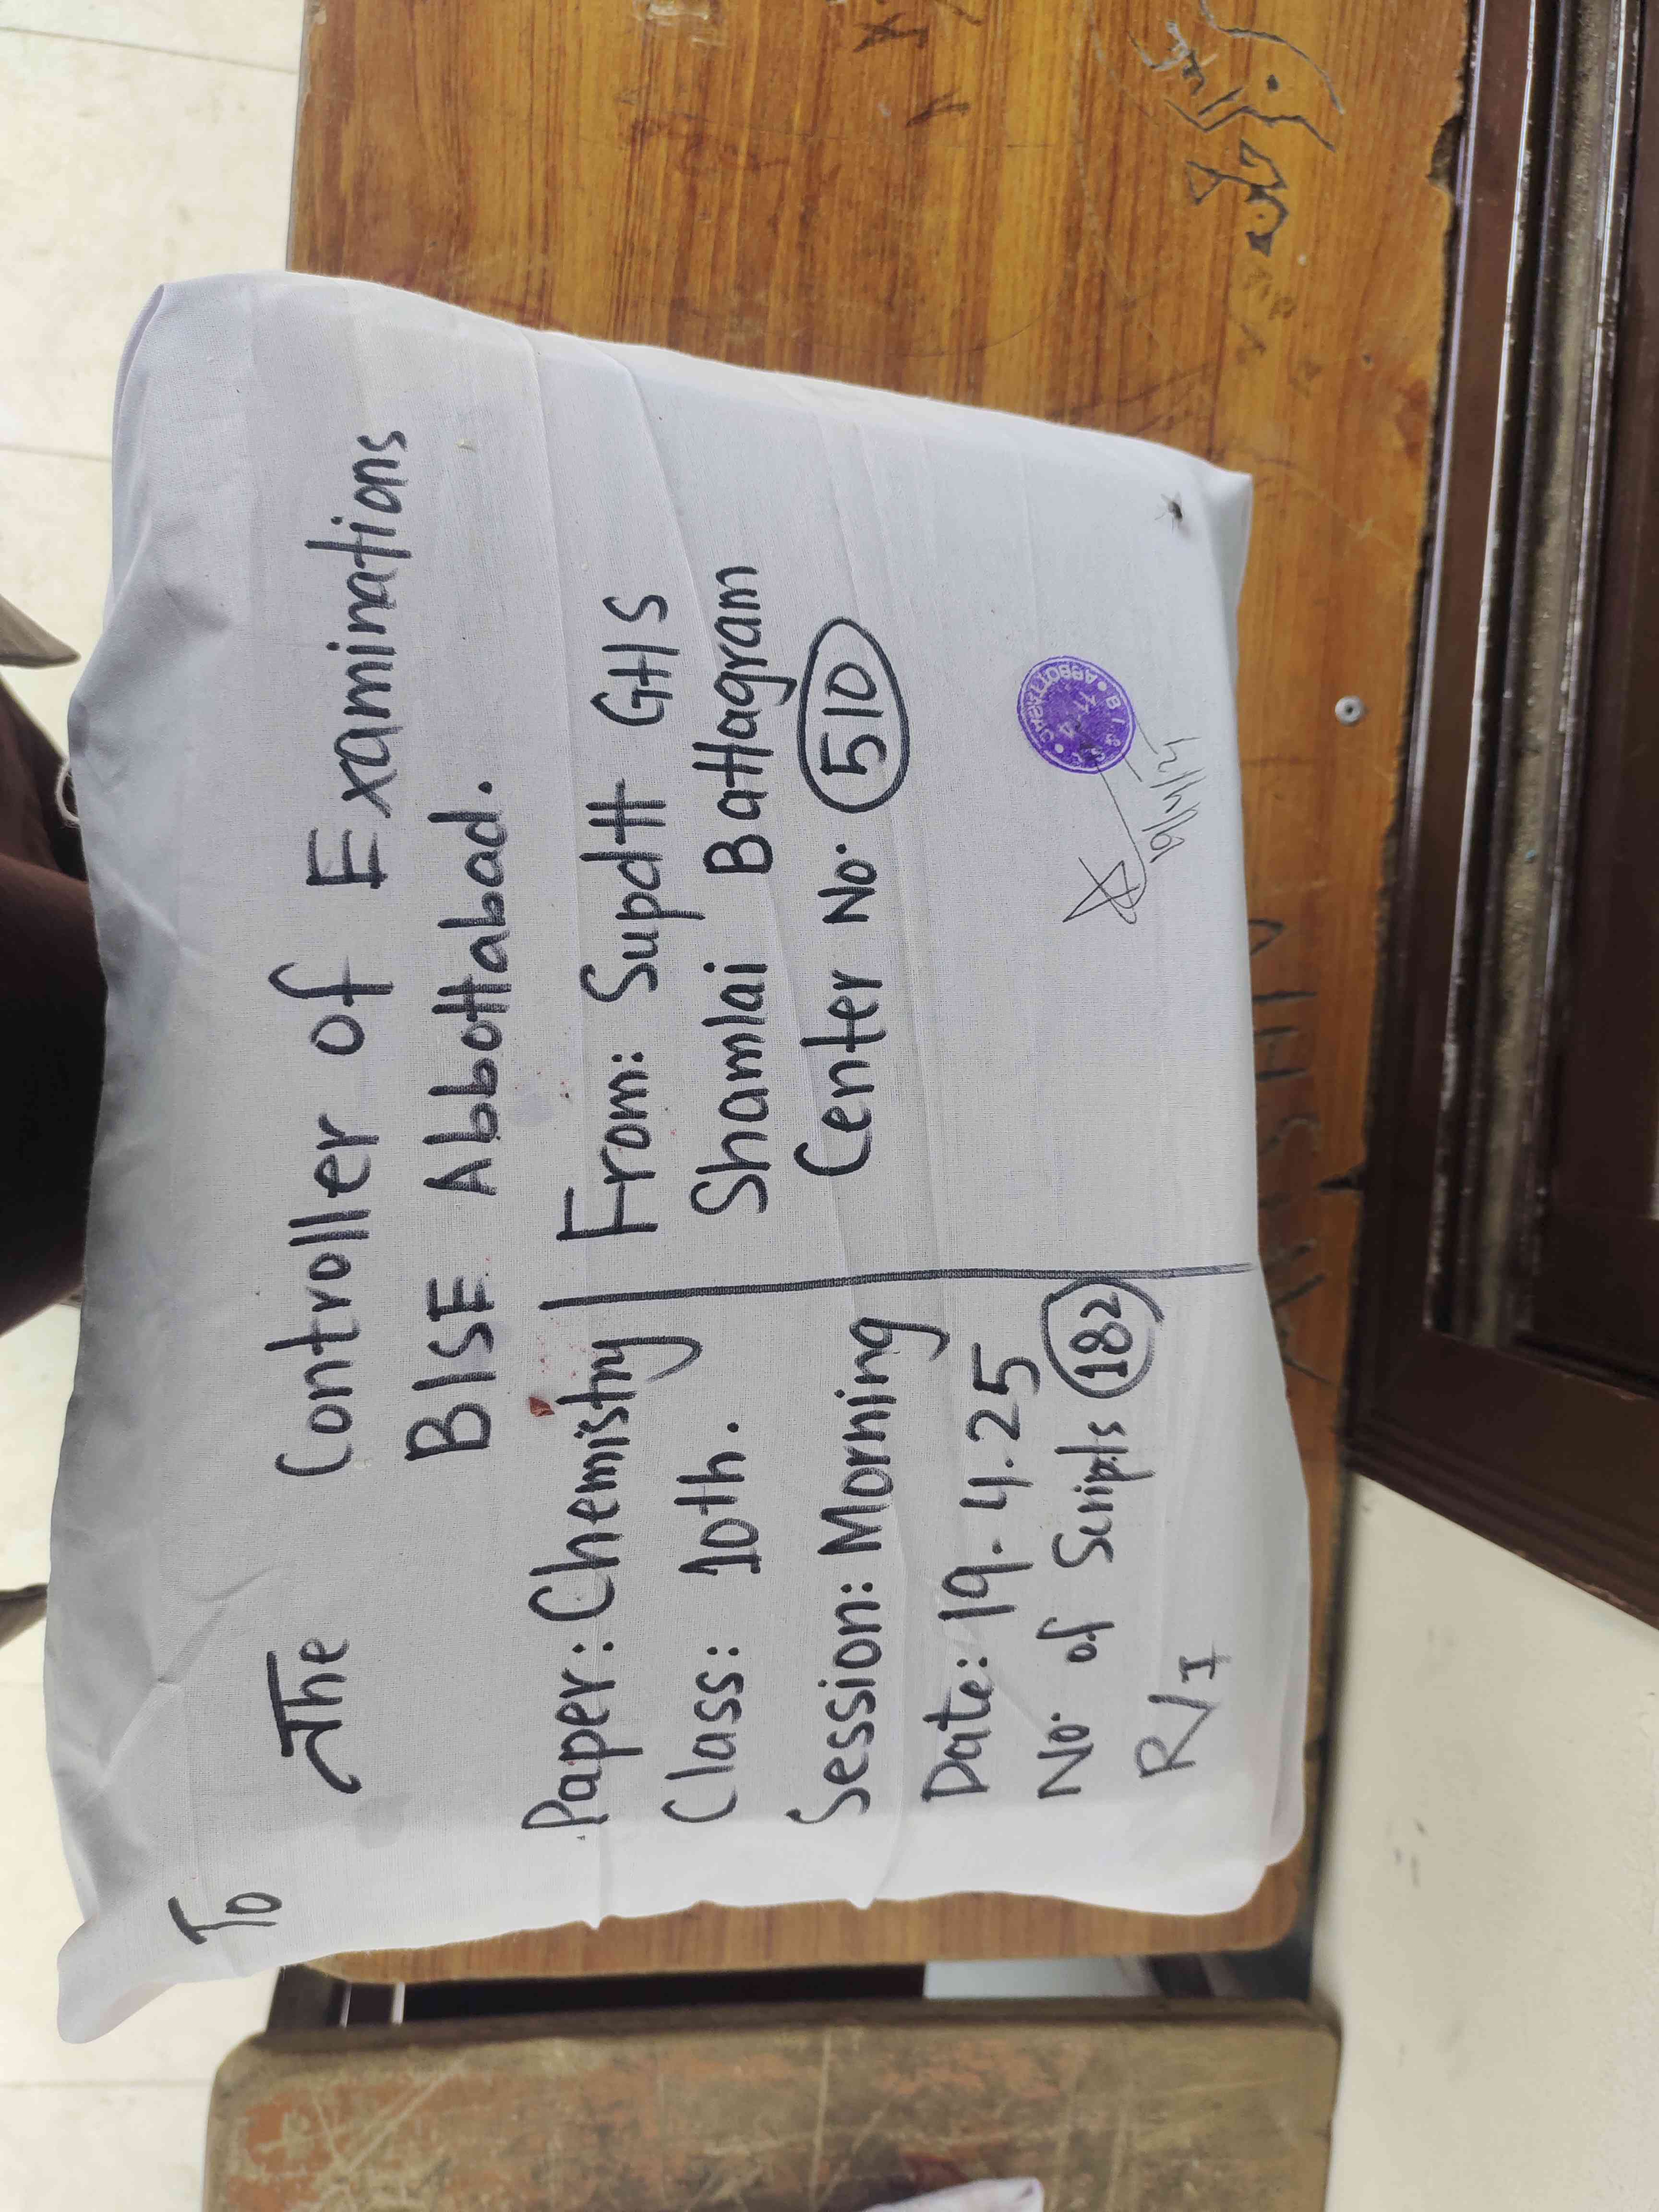 To
The Controller of Examinations
BISE Abbottabad.
Paper: Chemistry
Class: 10th.
Session: Morning
Date: 19.4.25
No. of Scripts 182
R/I
From: Supdtt GHS
Shamlai Battagram
Center No. 510
19/4/25